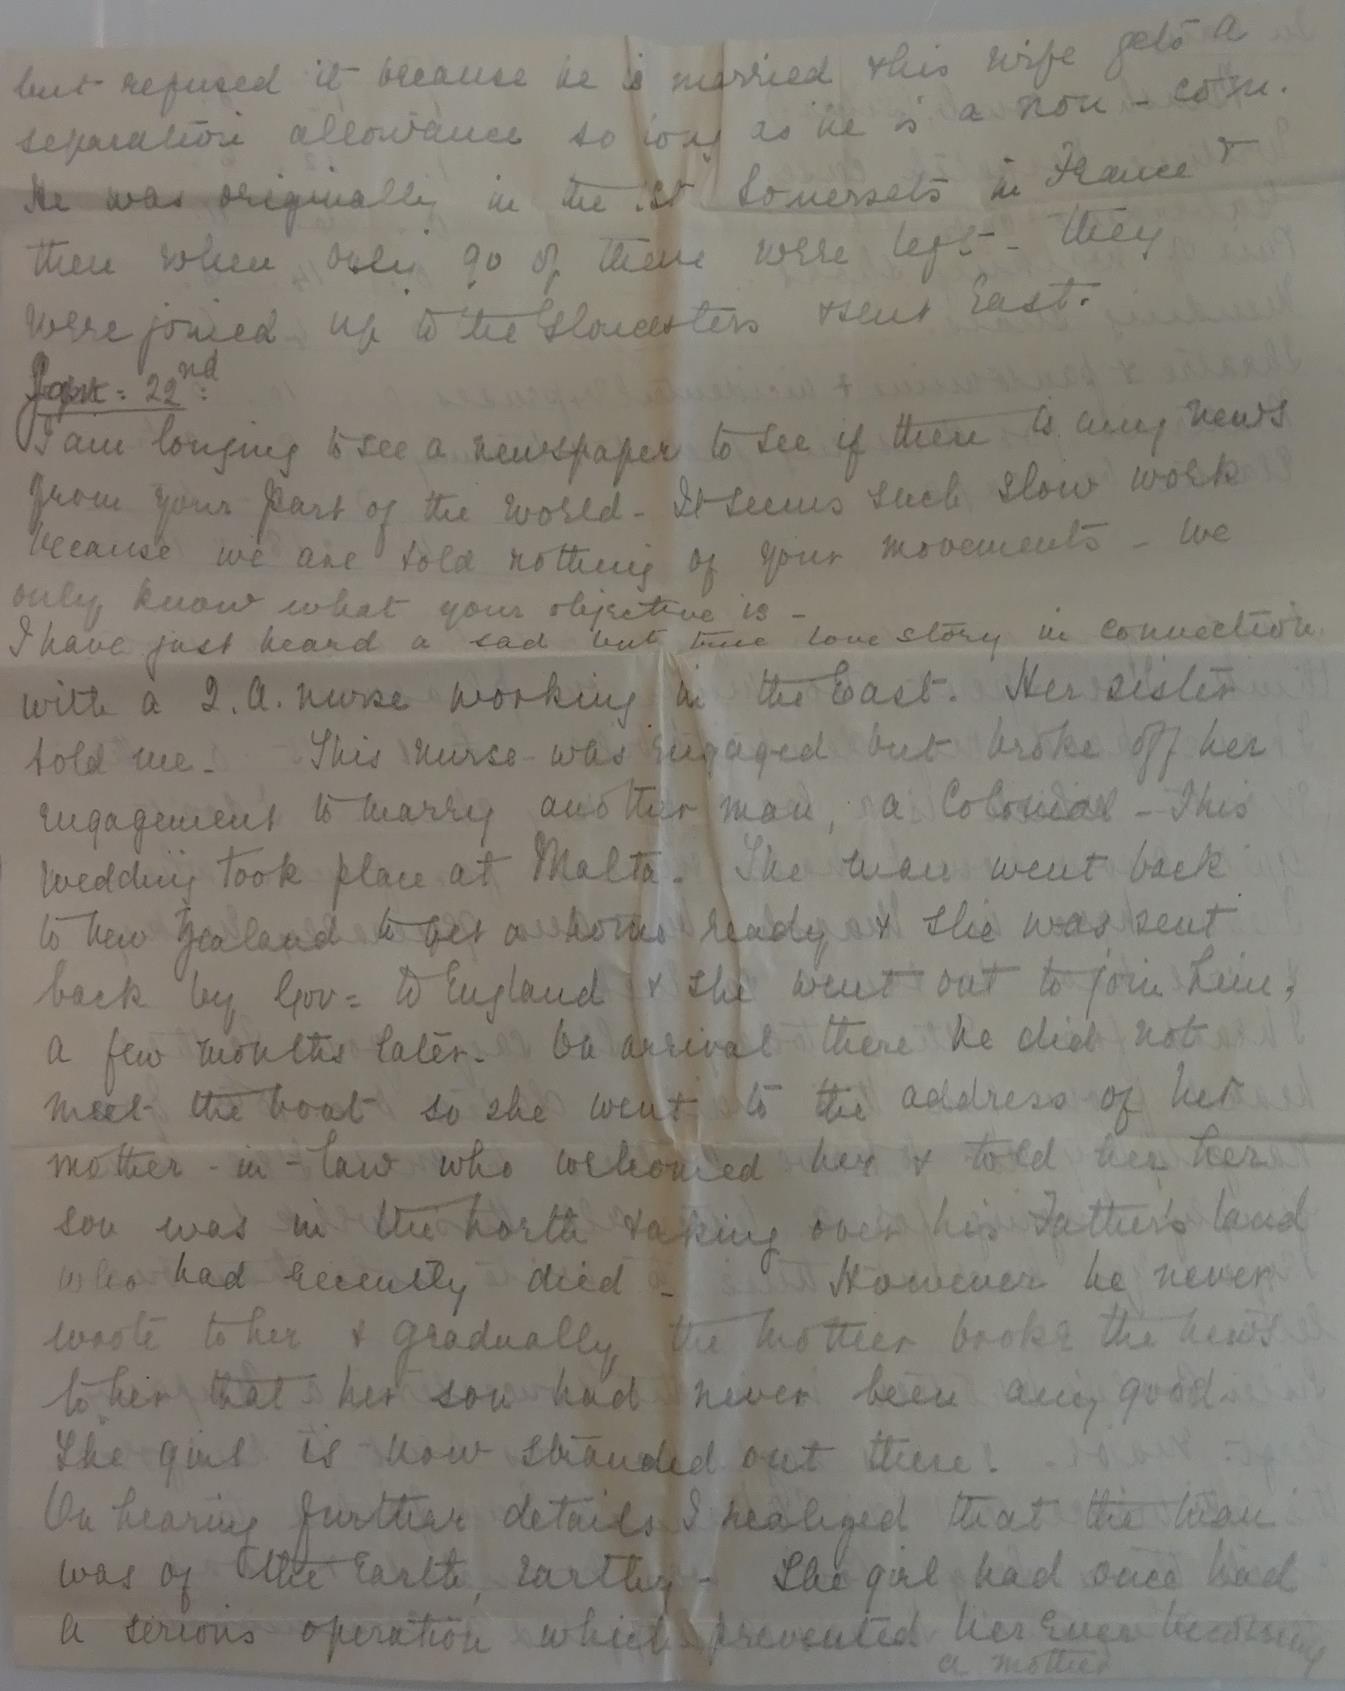 but refused it because he is married & his wife gets a
separation allowance so long as he is a non-com.
He was originally in the 1st Somersets in France &
then when only 90 of them were left - they
were joined up to the Gloucesters & sent East.
22nd:
I am longing to see a newspaper to see if there is any news
from your part of the world - It seems such slow work
because we are told nothing of your movements - we
only know what your objective is -
I have just heard a sad but true love story in connection
with a Q.A. nurse working in the East. Her sister
told me - This nurse was engaged but broke off her
engagement to marry another man, a Colonial - This
wedding took place at Malta. The man went back
to New Zealand to get a home ready & she was sent
back by Gov= to England & she went out to join him,
a few months later. On arrival there he did not
meet the boat so she went to the address of her
mother-in-law who welcomed her & told her her
son was in the north taking over his Father's land
who had recently died - However he never
wrote to her & gradually the mother broke the news
to her that her son had never been any good.
The girl is now stranded out there.
On hearing further details I realized that the man
was of the Earth, Earthy - The girl had once had
a serious operation which prevented her ever becoming
a mother